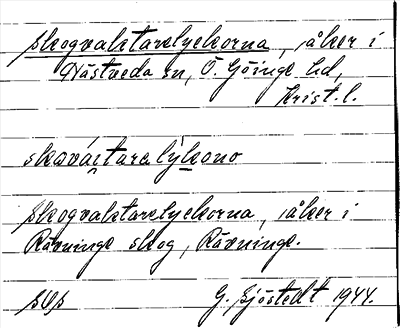 Skogvaktarelyckorna, åker i
Hästveda sn, Ö. Göinge hd,
Krist. l.
skováktarelýkono
Skogvaktarelyckorna, åker i
Röinge skog, Röinge.
G. Sjöstedt 1944.